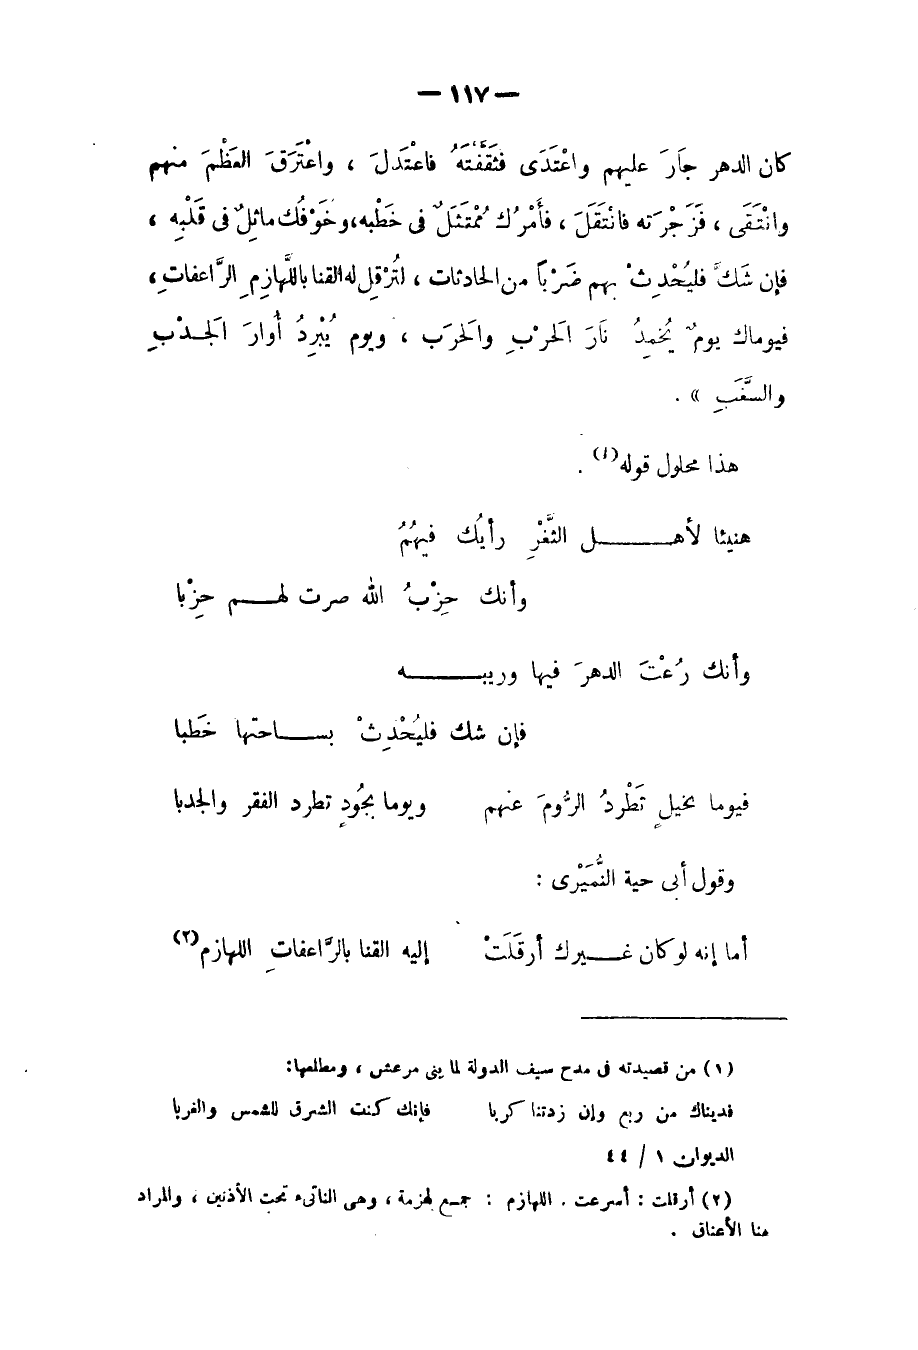 — ١١٧ —
كان الدهر جَارَ عليهم واعْتَدَى فَثَقَّفْتَهُ فاعْتَدلَ ، واعْتَرَقَ العَظْمَ منهم
وانْتَقَى ، فَزَجْرتَه فانْتَقَلَ ، فأَمْرُك مُمْتَثَلٌ فى خَطْبه، وخَوْفُك ماثِلٌ فى قَلْبِه ،
فإن شَكَّ فليُحْدِثْ بهم ضَرْباً من الحادثات ، لتُرْقِل له القنا باللَّهازمِ الرَّاعفاتِ ،
فيوماك يومٌ يُخمِدُ نَارَ الحرْبِ والحرَبِ ، ويوم يُبْرِدُ أُوارَ الجـدْبِ
والسَّغَبِ » .
هذا محلول قوله(١) .
هنيئا لأهـــــل الثَّغْرِ رأيُك فيهُمُ
وأنك حِزْبُ الله صرت لهـــم حِزْبا
وأنك رُعْتَ الدهرَ فيها وريبـــــه
فإن شك فليُحْدِثْ بســـاحتها خَطبا
فيوما بخيلٍ تَطْردُ الرُّومَ عنهم ويوما بجُودٍ تطرد الفقر والجدبا
وقول أبى حية النُّمَيْرى :
أما إنه لو كان غـــيرك أرقَلَتْ إليه القنا بالرَّاعفاتِ اللهازم(٢)
(١) من قصيدته فى مدح سيف الدولة لما بنى مرعش ، ومطلعها:
فديناك من ربع وإن زدتنا كربا فإنك كنت الشرق للشمس والغربا
الديوان ١ / ٤٤
(٢) أرقلت : أسرعت . اللهازم : جمـع لهزمة ، وهى الناتىء تحت الأذنين ، والمراد
هنا الأعناق .